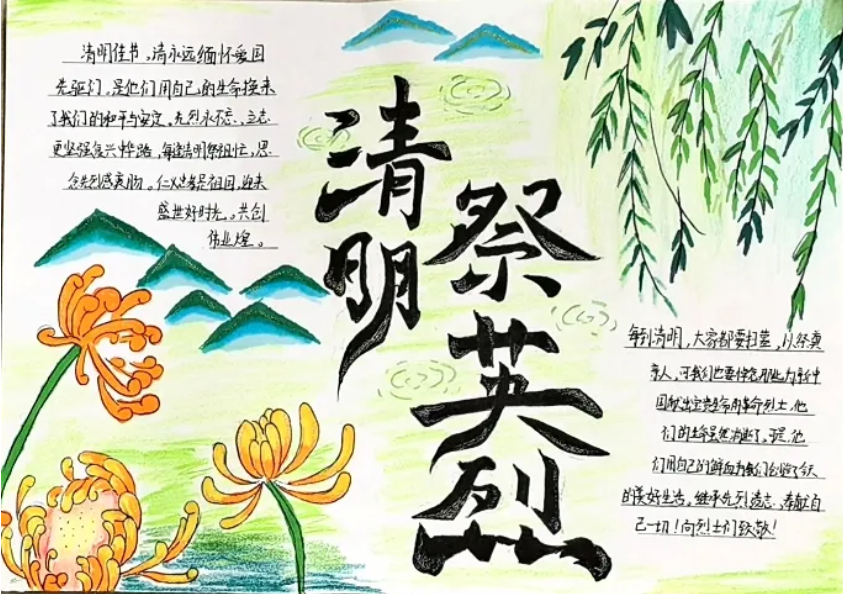 清明佳节,请永远缅怀爱国
先驱们,是他们用自己的生命换来
了我们的和平与安定。先烈永不忘、立志
更坚强复兴路,每逢清明祭祖忙,思
念先烈感衷肠。仁义忠是祖国,迎来
盛世好时光。共创
伟业煌。
清明
祭英烈
每到清明,大家都要扫墓,以祭奠
亲人,可我们也要
国献出宝贵命的革命烈士,他
们的生命虽然消逝了,可是,他
们用自己的鲜血为我们了今天
的美好生活。继承先烈遗志、奉献自
己一切!向烈士们致敬!